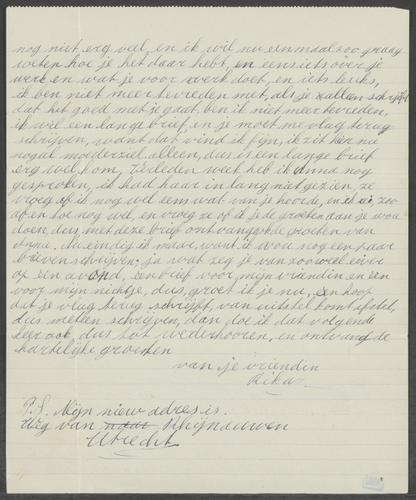 nog niet erg veel, en ik wil nu eenmaal zoo graag
weten hoe je het daar hebt, en eens iets over je
werk en wat je voor werk doet, en iets leuks,
ik ben niet meer tevreden met, als je alleen schrijft
dat het goed met je gaat, ben ik niet meer tevreden,
ik wil een lange brief, en je moet me vlug terug
schrijven, want dat vind ik fijn, ik zit hier nu
nogal moederziel alleen, dus is een lange brief
erg welkom, Verleden week heb ik Anna nog
gesproken, ik had haar in lang niet gezien, ze
vroeg of ik nog wel eens wat van je hoorde, en ik zei, zoo
af en toe nog wel, en vroeg ze of ik je de groeten aan je wou
doen, dus met deze brief ontvang de groeten van
Anna. Nu eindig ik maar, want ik wou nog een paar
brieven schrijven, ja wat zeg je van zooveel
op een avond, een brief voor mijn vriendin en een
voor mijn nichtje, dus, groet ik je nu, een hoop
dat je vlug terug schrijft, van uitstel komt afstel,
dus meteen schrijven, dan doe ik dat volgende
keer ook, dus tot wederhooren, en ontvang de
hartelijke groeten
van je vriendin
Rika
P.S. Mijn nieuw adres is.
Weg van naar Rhijnauwen
Utrecht